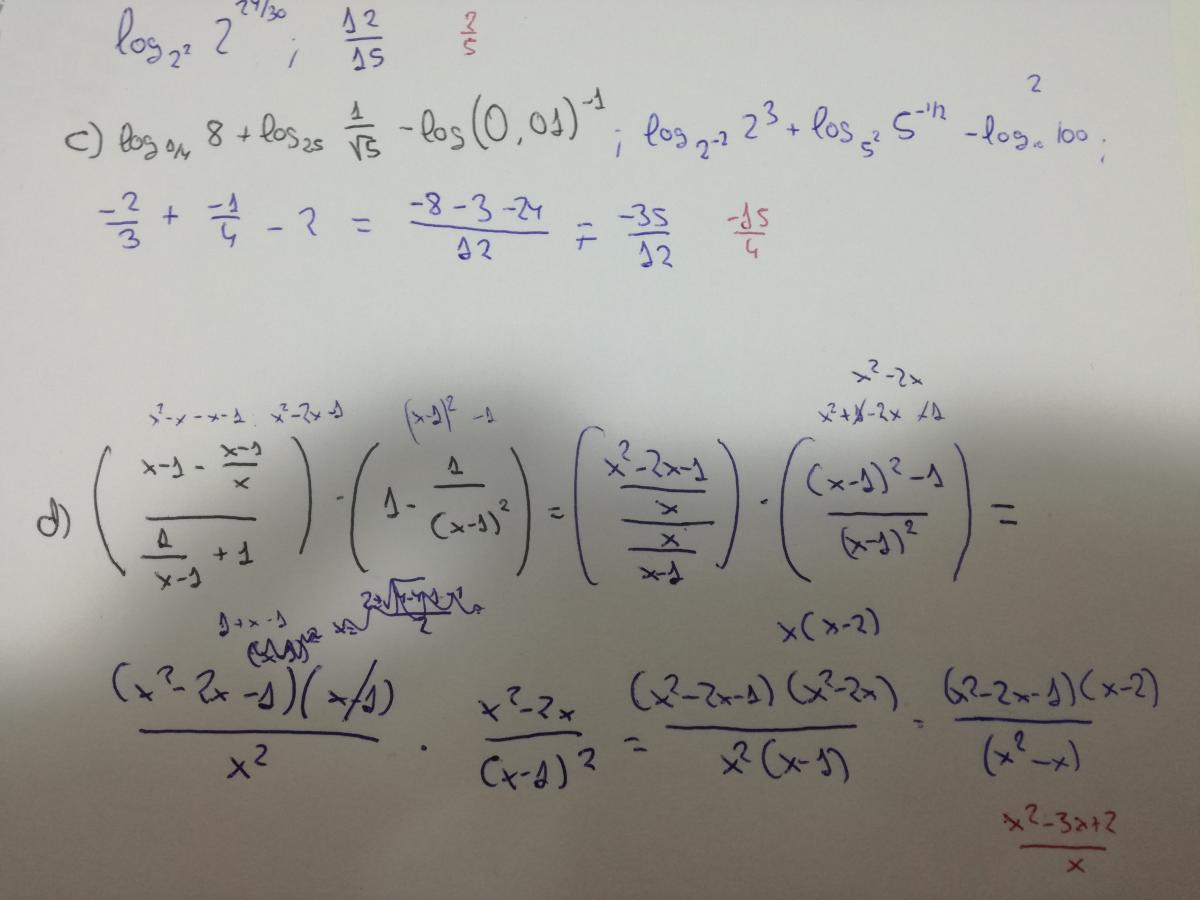 log_{2^2} 2^{24/30} ; 12/15 3/5
2
c) log_{1/4} 8 + log_{25} 1/√5 - log(0,01)^{-1} ; log_{2^{-2}} 2^3 + log_{5^2} 5^{-1/2} - log 100 ;
-2/3 + -1/4 - 2 = (-8-3-24)/12 = -35/12 -15/4
x^2-2x
x^2-x-x-1 : x^2-2x-1 (x-1)^2 -1 x^2+1-2x-1
d) ((x-1 - (x-1)/x)/(1/(x-1) + 1)) · (1 - 1/(x-1)^2) = (((x^2-2x-1)/x)/(x/(x-1))) · (((x-1)^2-1)/(x-1)^2) =
1+x-1 x(x-2)
((x^2-2x-1)(x-1))/x^2 · (x^2-2x)/(x-1)^2 = ((x^2-2x-1)(x^2-2x))/(x^2(x-1)) = ((x^2-2x-1)(x-2))/(x^2-x)
(x^2-3x+2)/x